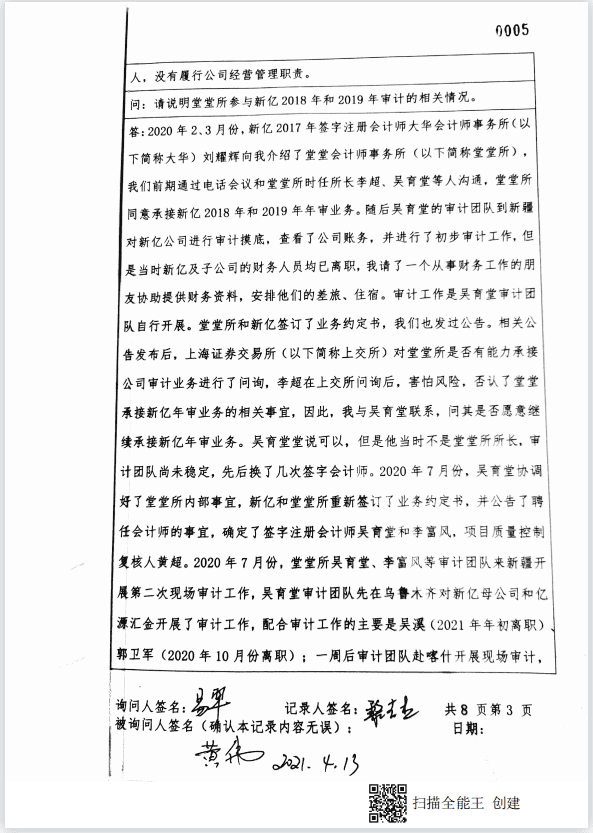 0005
人，没有履行公司经营管理职责。
问：请说明堂堂所参与新亿 2018 年和 2019 年审计的相关情况。
答：2020 年 2、3 月份，新亿 2017 年签字注册会计师大华会计师事务所（以
下简称大华）刘耀辉向我介绍了堂堂会计师事务所（以下简称堂堂所），
我们前期通过电话会议和堂堂所时任所长李超、吴育堂等人沟通，堂堂所
同意承接新亿 2018 年和 2019 年年审业务。随后吴育堂的审计团队到新疆
对新亿公司进行审计摸底，查看了公司账务，并进行了初步审计工作，但
是当时新亿及子公司的财务人员均已离职，我请了一个从事财务工作的朋
友协助提供财务资料，安排他们的差旅、住宿。审计工作是吴育堂审计团
队自行开展。堂堂所和新亿签订了业务约定书，我们也发过公告。相关公
告发布后，上海证券交易所（以下简称上交所）对堂堂所是否有能力承接
公司审计业务进行了问询，李超在上交所问询后，害怕风险，否认了堂堂
承接新亿年审业务的相关事宜，因此，我与吴育堂联系，问其是否愿意继
续承接新亿年审业务。吴育堂堂说可以，但是他当时不是堂堂所所长，审
计团队尚未稳定，先后换了几次签字会计师。2020 年 7 月份，吴育堂协调
好了堂堂所内部事宜，新亿和堂堂所重新签订了业务约定书，并公告了聘
任会计师的事宜，确定了签字注册会计师吴育堂和李富风，项目质量控制
复核人黄超。2020 年 7 月份，堂堂所吴育堂、李富风等审计团队来新疆开
展第二次现场审计工作，吴育堂审计团队先在乌鲁木齐对新亿母公司和亿
源汇金开展了审计工作，配合审计工作的主要是吴溪（2021 年年初离职）、
郭卫军（2020 年 10 月份离职）；一周后审计团队赴喀什开展现场审计，
询问人签名： 记录人签名： 共 8 页第 3 页
被询问人签名（确认本记录内容无误）： 日期：
黄伟 2021.4.13
扫描全能王 创建